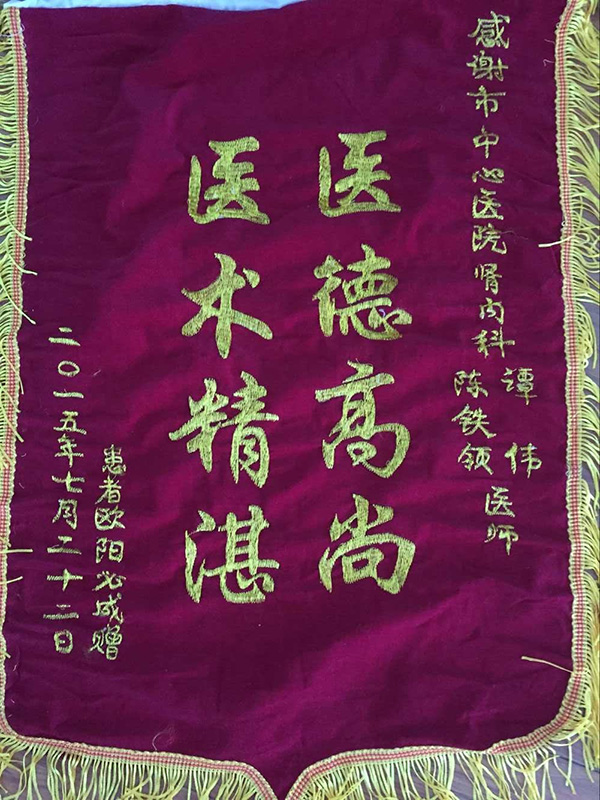 感谢市中心医院肾内科
谭伟
陈铁领
医师
医德高尚
医术精湛
患者欧阳必成赠
二〇一五年七月二十二日